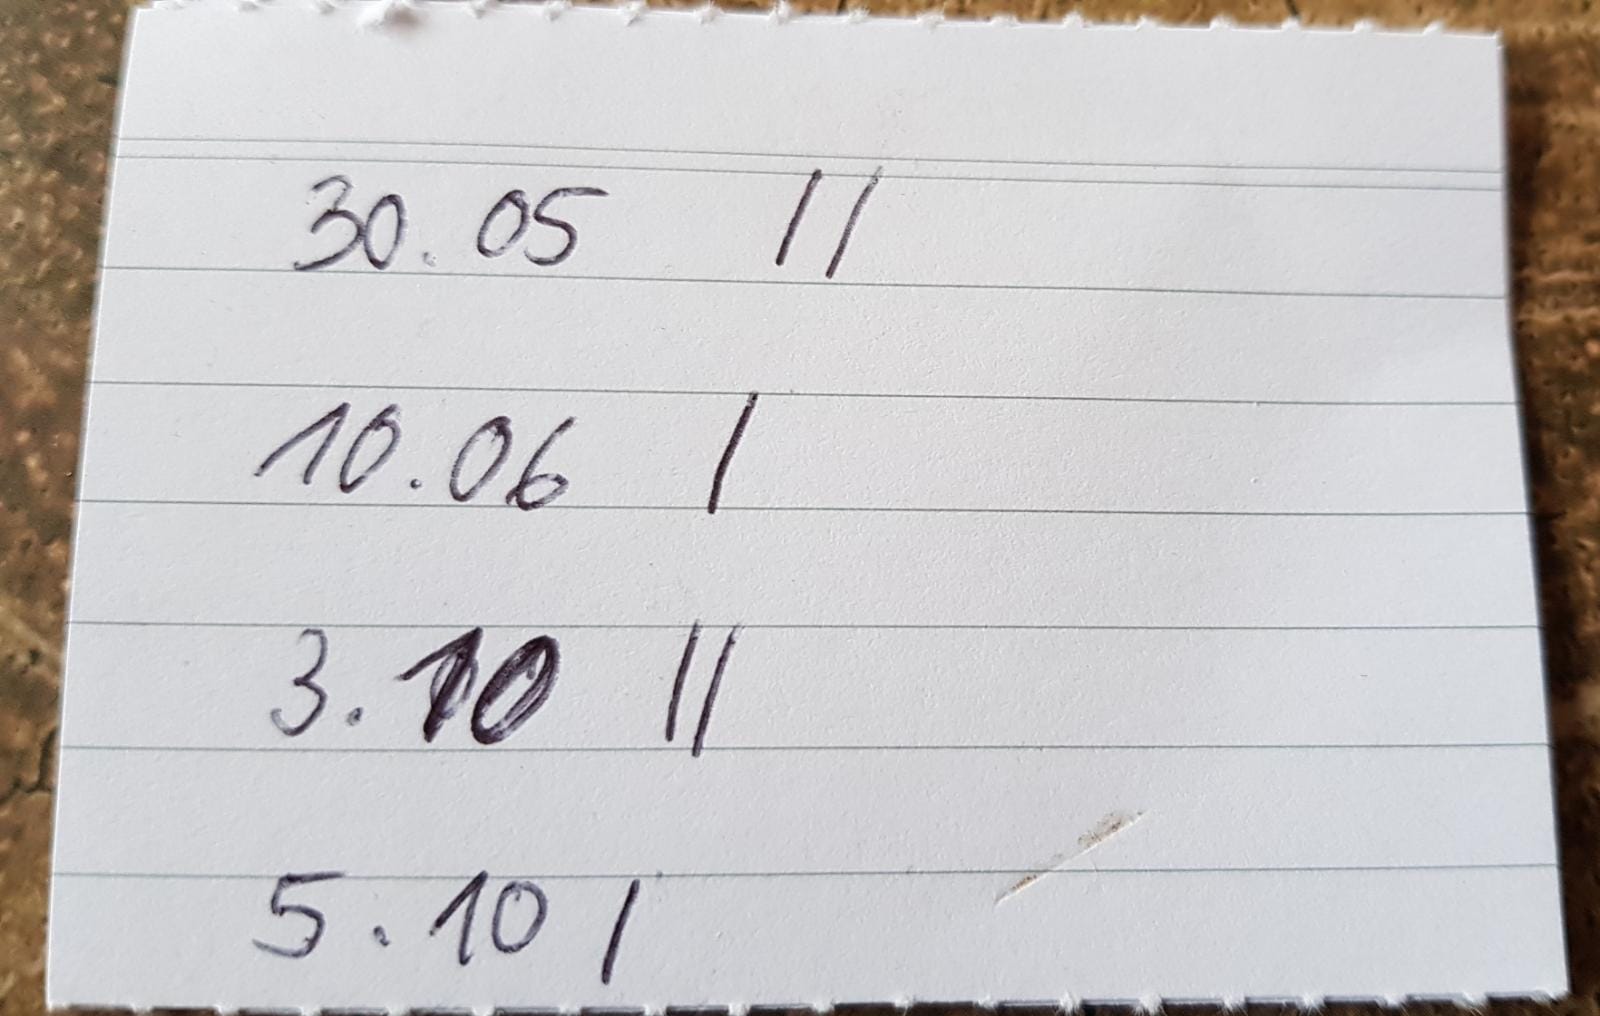 30. 05 ||
10.06 |
3. 10 ||
5. 10 |